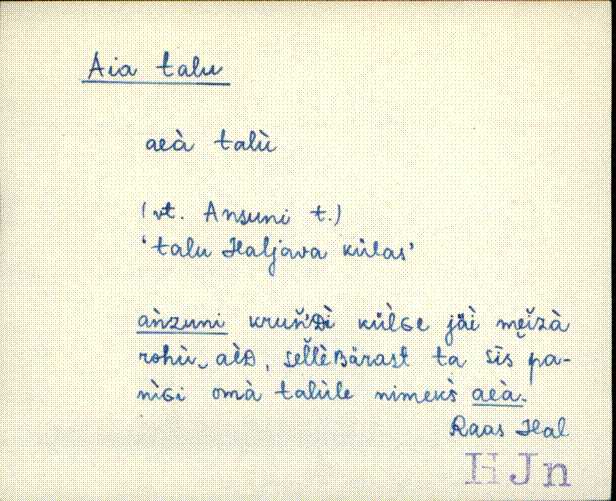 Aia talu
aeà talù
(vt. Ansuni t.)
'talu Haljava külas'
aǹzuni kruňᴅì külɢe jäì mei̯zà
rohù‿aèᴅ, selleʙärast ta sīs pa-
nìɢi omà talùle nimeks̀ aeà.
Raas Hal
HJn